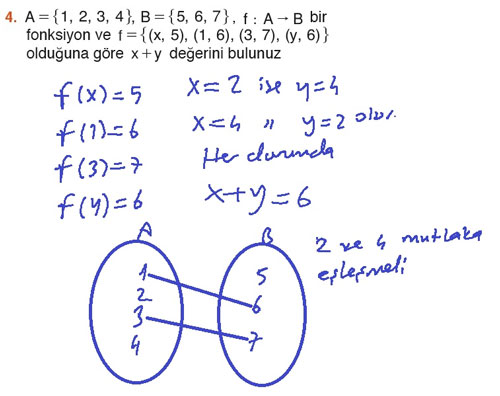 4. A={1, 2, 3, 4}, B={5, 6, 7}, f : A → B bir
fonksiyon ve f={(x, 5), (1, 6), (3, 7), (y, 6)}
olduğuna göre x+y değerini bulunuz
f(x)=5
f(1)=6
f(3)=7
f(y)=6
x=2 ise y=4
x=4 " y=2 olur.
Her durumda
x+y=6
A
B
1
2
3
4
5
6
7
2 ve 4 mutlaka
eşleşmeli